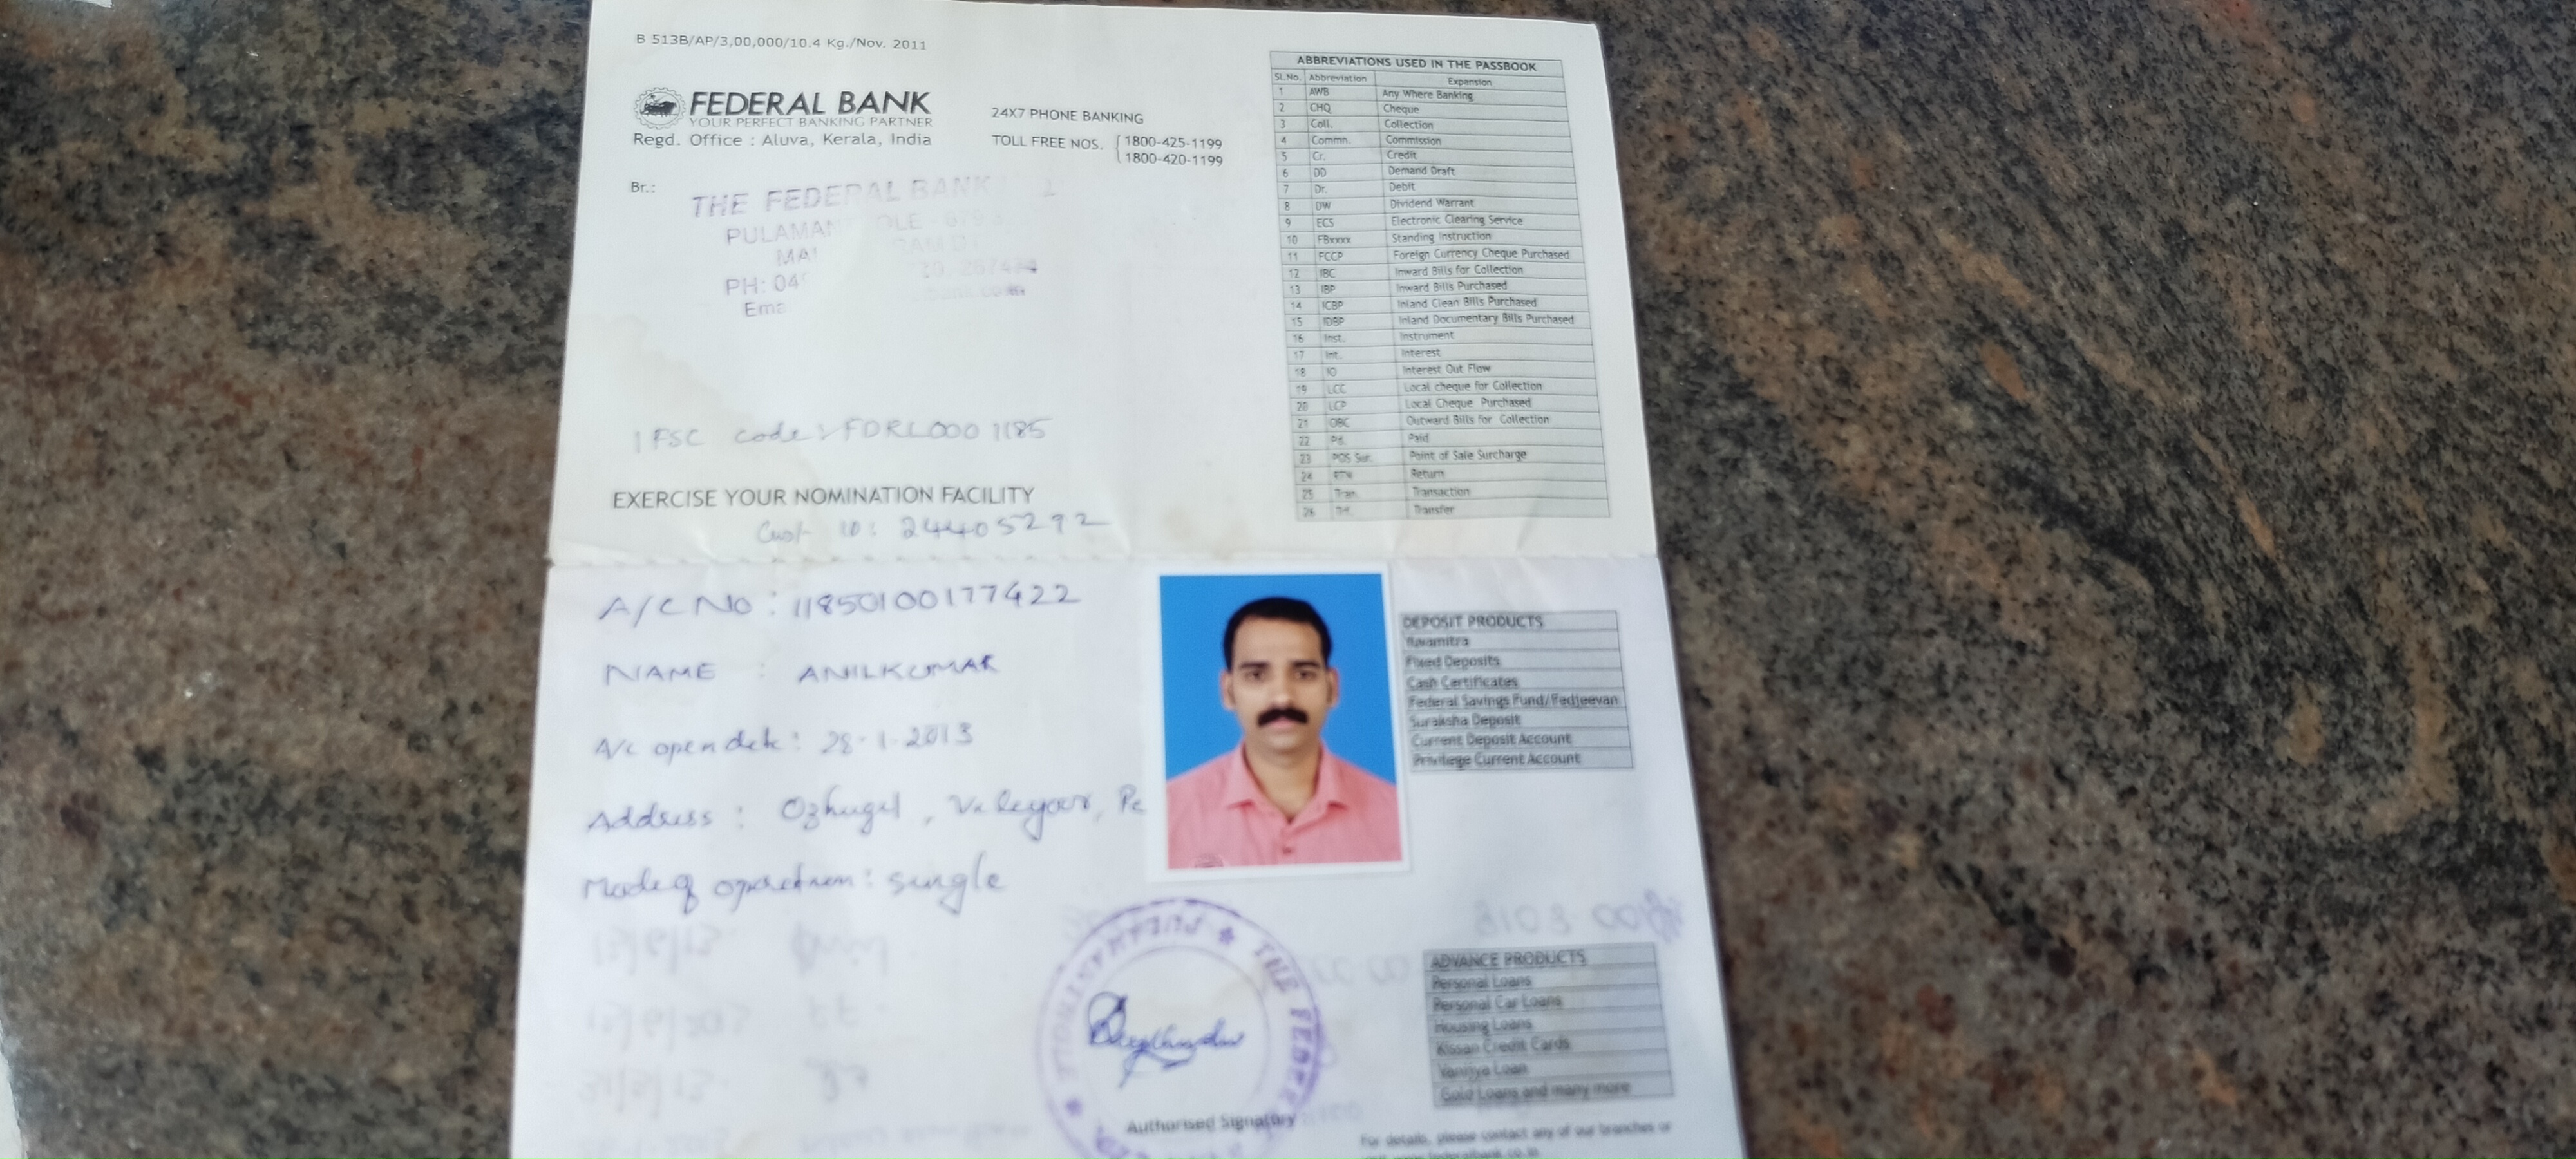 B 513B/AP/3,00,000/10.4 Kg./Nov. 2011
FEDERAL BANK
YOUR PERFECT BANKING PARTNER
Regd. Office : Aluva, Kerala, India
24X7 PHONE BANKING
TOLL FREE NOS. 1800-425-1199
1800-420-1199
Br.:
THE FEDERAL BANK
PH: 04
IFSC code: FDRL0001185
EXERCISE YOUR NOMINATION FACILITY
Cust ID: 24405292
ABBREVIATIONS USED IN THE PASSBOOK
Sl.No. Abbreviation Expansion
1 AWB Any Where Banking
2 CHQ Cheque
3 Coll. Collection
4 Commn. Commission
5 Cr. Credit
6 DD Demand Draft
7 Dr. Debit
8 DW Dividend Warrant
9 ECS Electronic Clearing Service
10 FBxxxx Standing Instruction
11 FCCP Foreign Currency Cheque Purchased
12 IBC Inward Bills for Collection
13 IBP Inward Bills Purchased
14 ICBP Inland Clean Bills Purchased
15 IDBP Inland Documentary Bills Purchased
16 Inst. Instrument
17 Int. Interest
18 IO Interest Out Flow
19 LCC Local cheque for Collection
20 LCP Local Cheque Purchased
21 OBC Outward Bills for Collection
22 Pd. Paid
23 POS Sur. Point of Sale Surcharge
24 RTN Return
25 Tran. Transaction
26 Trf. Transfer
A/C NO : 11850100177422
NAME : ANILKUMAR
A/c open date : 28-1-2013
Address : Ozhugil,
Mode of operation : single
DEPOSIT PRODUCTS
Yuvamitra
Fixed Deposits
Cash Certificates
Federal Savings Fund/Fedjeevan
Suraksha Deposit
Current Deposit Account
Privilege Current Account
THE FEDER
Authorised Signatory
ADVANCE PRODUCTS
Personal Loans
Personal Car Loans
Housing Loans
Kissan Credit Cards
Vanijya Loan
Gold Loans and many more
For details, please contact any of our branches or